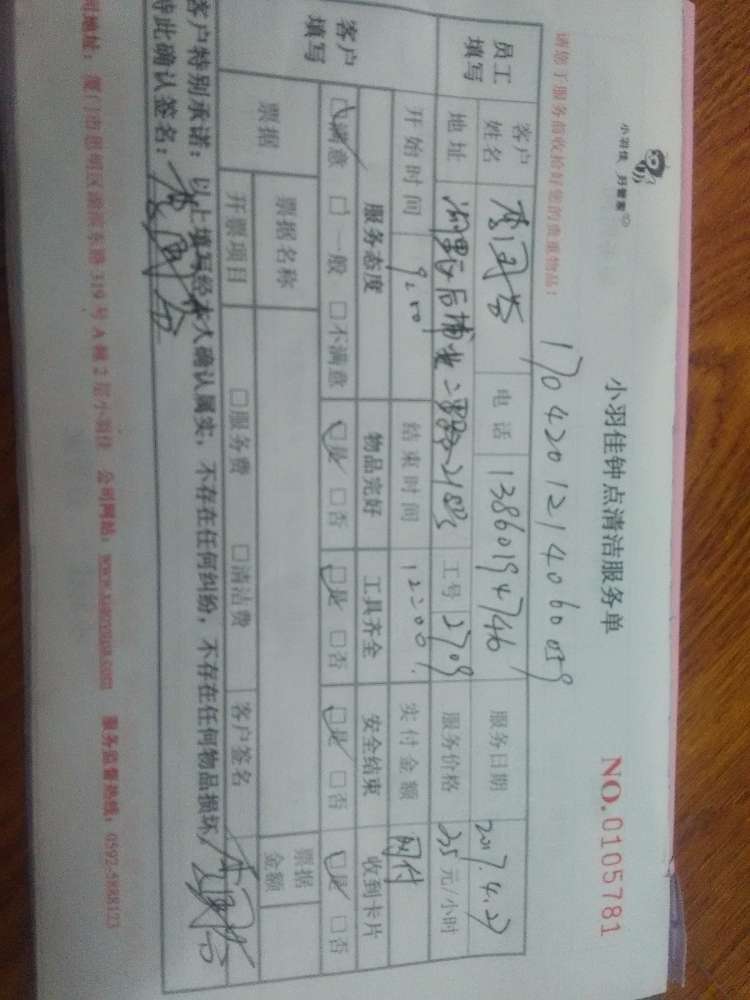 小羽佳 好管家
小羽佳钟点清洁服务单
NO.0105781
1704201214060059
请您于服务前收拾好您的贵重物品:
员工填写 客户姓名 电话 13860194746 服务日期 2017.4.27
地址 工号 2709 服务价格 35元/小时
开始时间 9:00 结束时间 12:00 实付金额 网付
客户填写 服务态度 物品完好 工具齐全 安全结束 收到卡片
☑满意 □一般 □不满意 ☑是 □否 ☑是 □否 ☑是 □否 ☑是 □否
票据 票据名称 票据金额
开票项目 □服务费 □清洁费 客户签名
客户特别承诺:以上填写经本人确认属实,不存在任何纠纷,不存在任何物品损坏,
特此确认签名:
司地址:厦门市思明区 319号A幢2层小羽佳 公司网站: 服务监督热线:0592-5888123